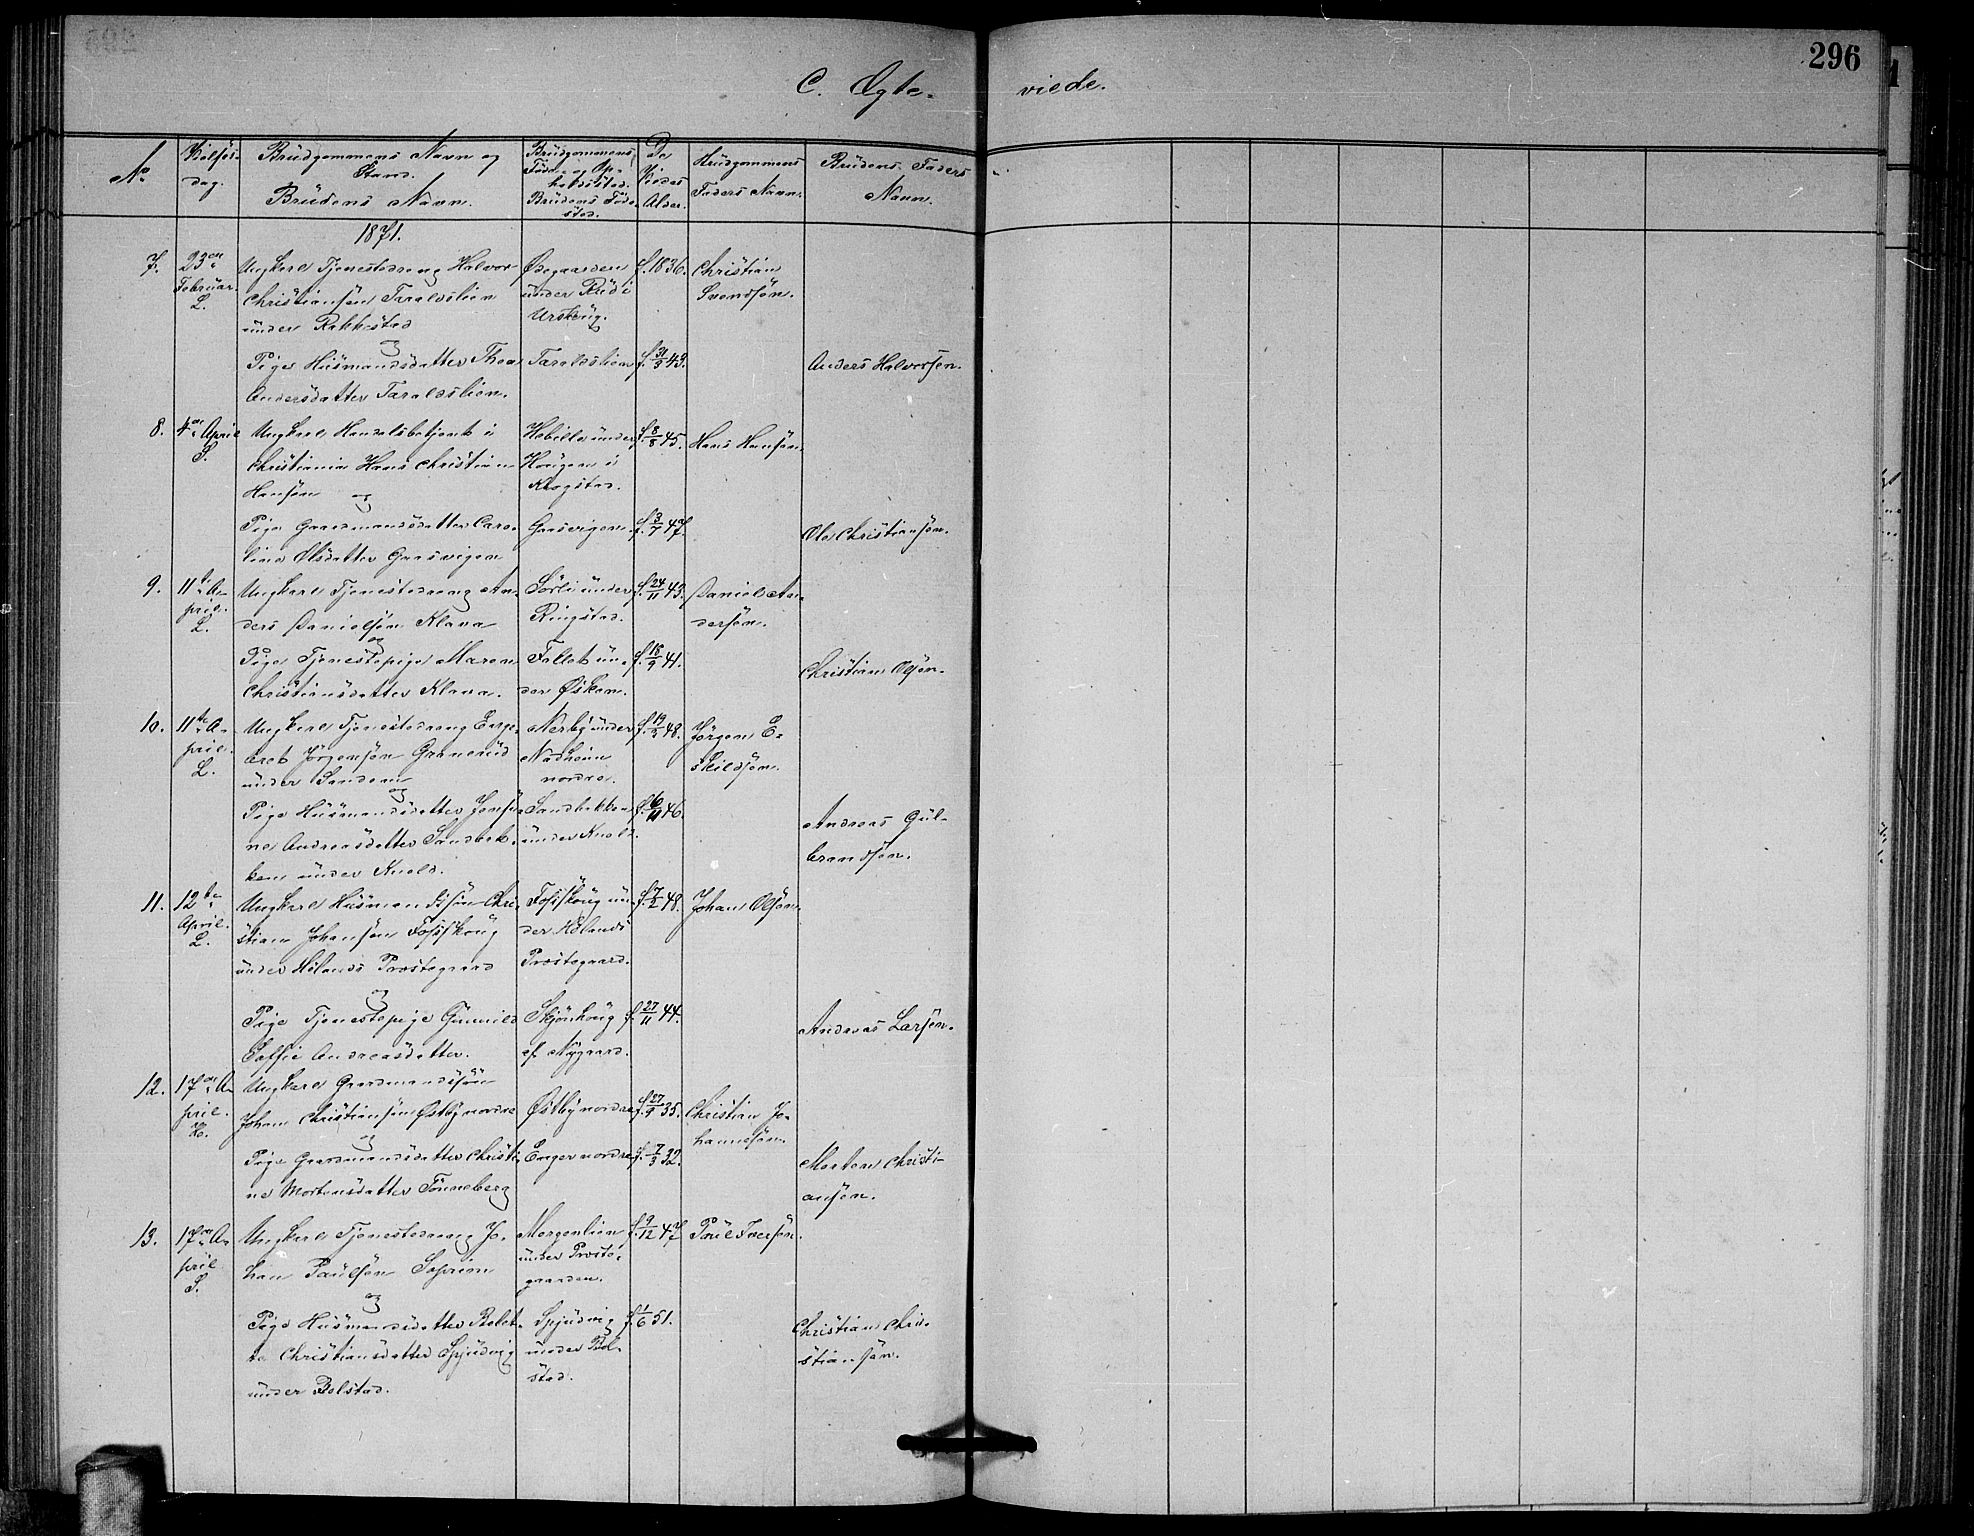 296
C. Ægte-
viede.
No
Vielses-
dag.
Brudgommens Navn og
Stand.
Brudens Navn.
Brudgommens
Føde- og Op-
holdssted.
Brudens Føde-
sted.
De
Viedes
Alder.
Brudgommens
Faders Navn.
Brudens Faders
Navn.
1871.
7.
23de
Februar.
L.
Ungkarl Tjenestedreng Halvor
Christiansøn Taraldslien
under Rakkestad
Ødegaarden
under Rud i
Urskoug.
f. 1836.
Christian
Svendsøn.
og
Pige Husmandsdatter Thea
Andersdatter Taraldslien.
Taraldslien
f. 31/3 43.
Anders Halvorsen.
8.
4de April
S.
Ungkarl Handelsbetjent i
Christiania Hans Christian
Hansøn
under
Haugen i
Kragstad.
f. 8/8 45.
Hans Hansøn.
og
Pige Gaardmandsdatter Caro-
line Olsdatter Gaasvigen
Gaasvigen.
f. 3/7 47.
Ole Christiansøn.
9.
11te A-
pril.
L.
Ungkarl Tjenestedreng An-
ders Danielsøn Klava
Sørli under
Ringstad.
f. 24/11 43.
Daniel An-
dersøn.
og
Pige Tjenestepige Maren
Christiansdatter Klava.
Fallet un-
der Østen.
f. 18/9 41.
Christian Olsøn.
10.
11te A-
pril.
L.
Ungkarl Tjenestedreng Enge-
bret Jørgensøn Granerud
under Sanden
Nerby under
Nadheim
nordre.
f. 19/2 48.
Jørgen E-
skildsøn.
og
Pige Husmandsdatter Josefi-
ne Andreasdatter Sandbek-
ken under Kuold.
Sandbekken
under Kuold.
f. 6/11 46.
Andreas Gul-
brandsøn.
11.
12te
April.
L.
Ungkarl Husmandssøn Chri-
stian Johansøn Fosskoug
under Hølands Præstegaard
Fosskoug un-
der Hølands
Præstegaard.
f. 7/2 48.
Johan Olsøn.
og
Pige Tjenestepige Gunnild
Soffie Andreasdatter.
Skjønhoug
af Nygaard.
f. 27/11 44.
Andreas Larsøn.
12.
17de A-
pril.
Ungkarl Gaardmandssøn
Johan Christiansøn Østby nordre
Østby nordre
f. 27/9 35.
Christian Jo-
hannesøn.
og
Pige Gaardmandsdatter Christi-
ne Mortensdatter Tønneberg
Enger nordre
f. 7/3 32.
Morten Christi-
ansøn.
13.
17de A-
pril
S.
Ungkarl Tjenestedreng Jo-
han Paulsøn
Morgenlien
under Præste-
gaarden.
f. 9/12 47
Paul Iversøn.
og
Pige Husmandsdatter Bolet-
te Christiansdatter Spjudvig
under Bolstad.
Spjudvig
under Bol-
stad.
f. 1/6 51.
Christian Chri-
stiansøn.